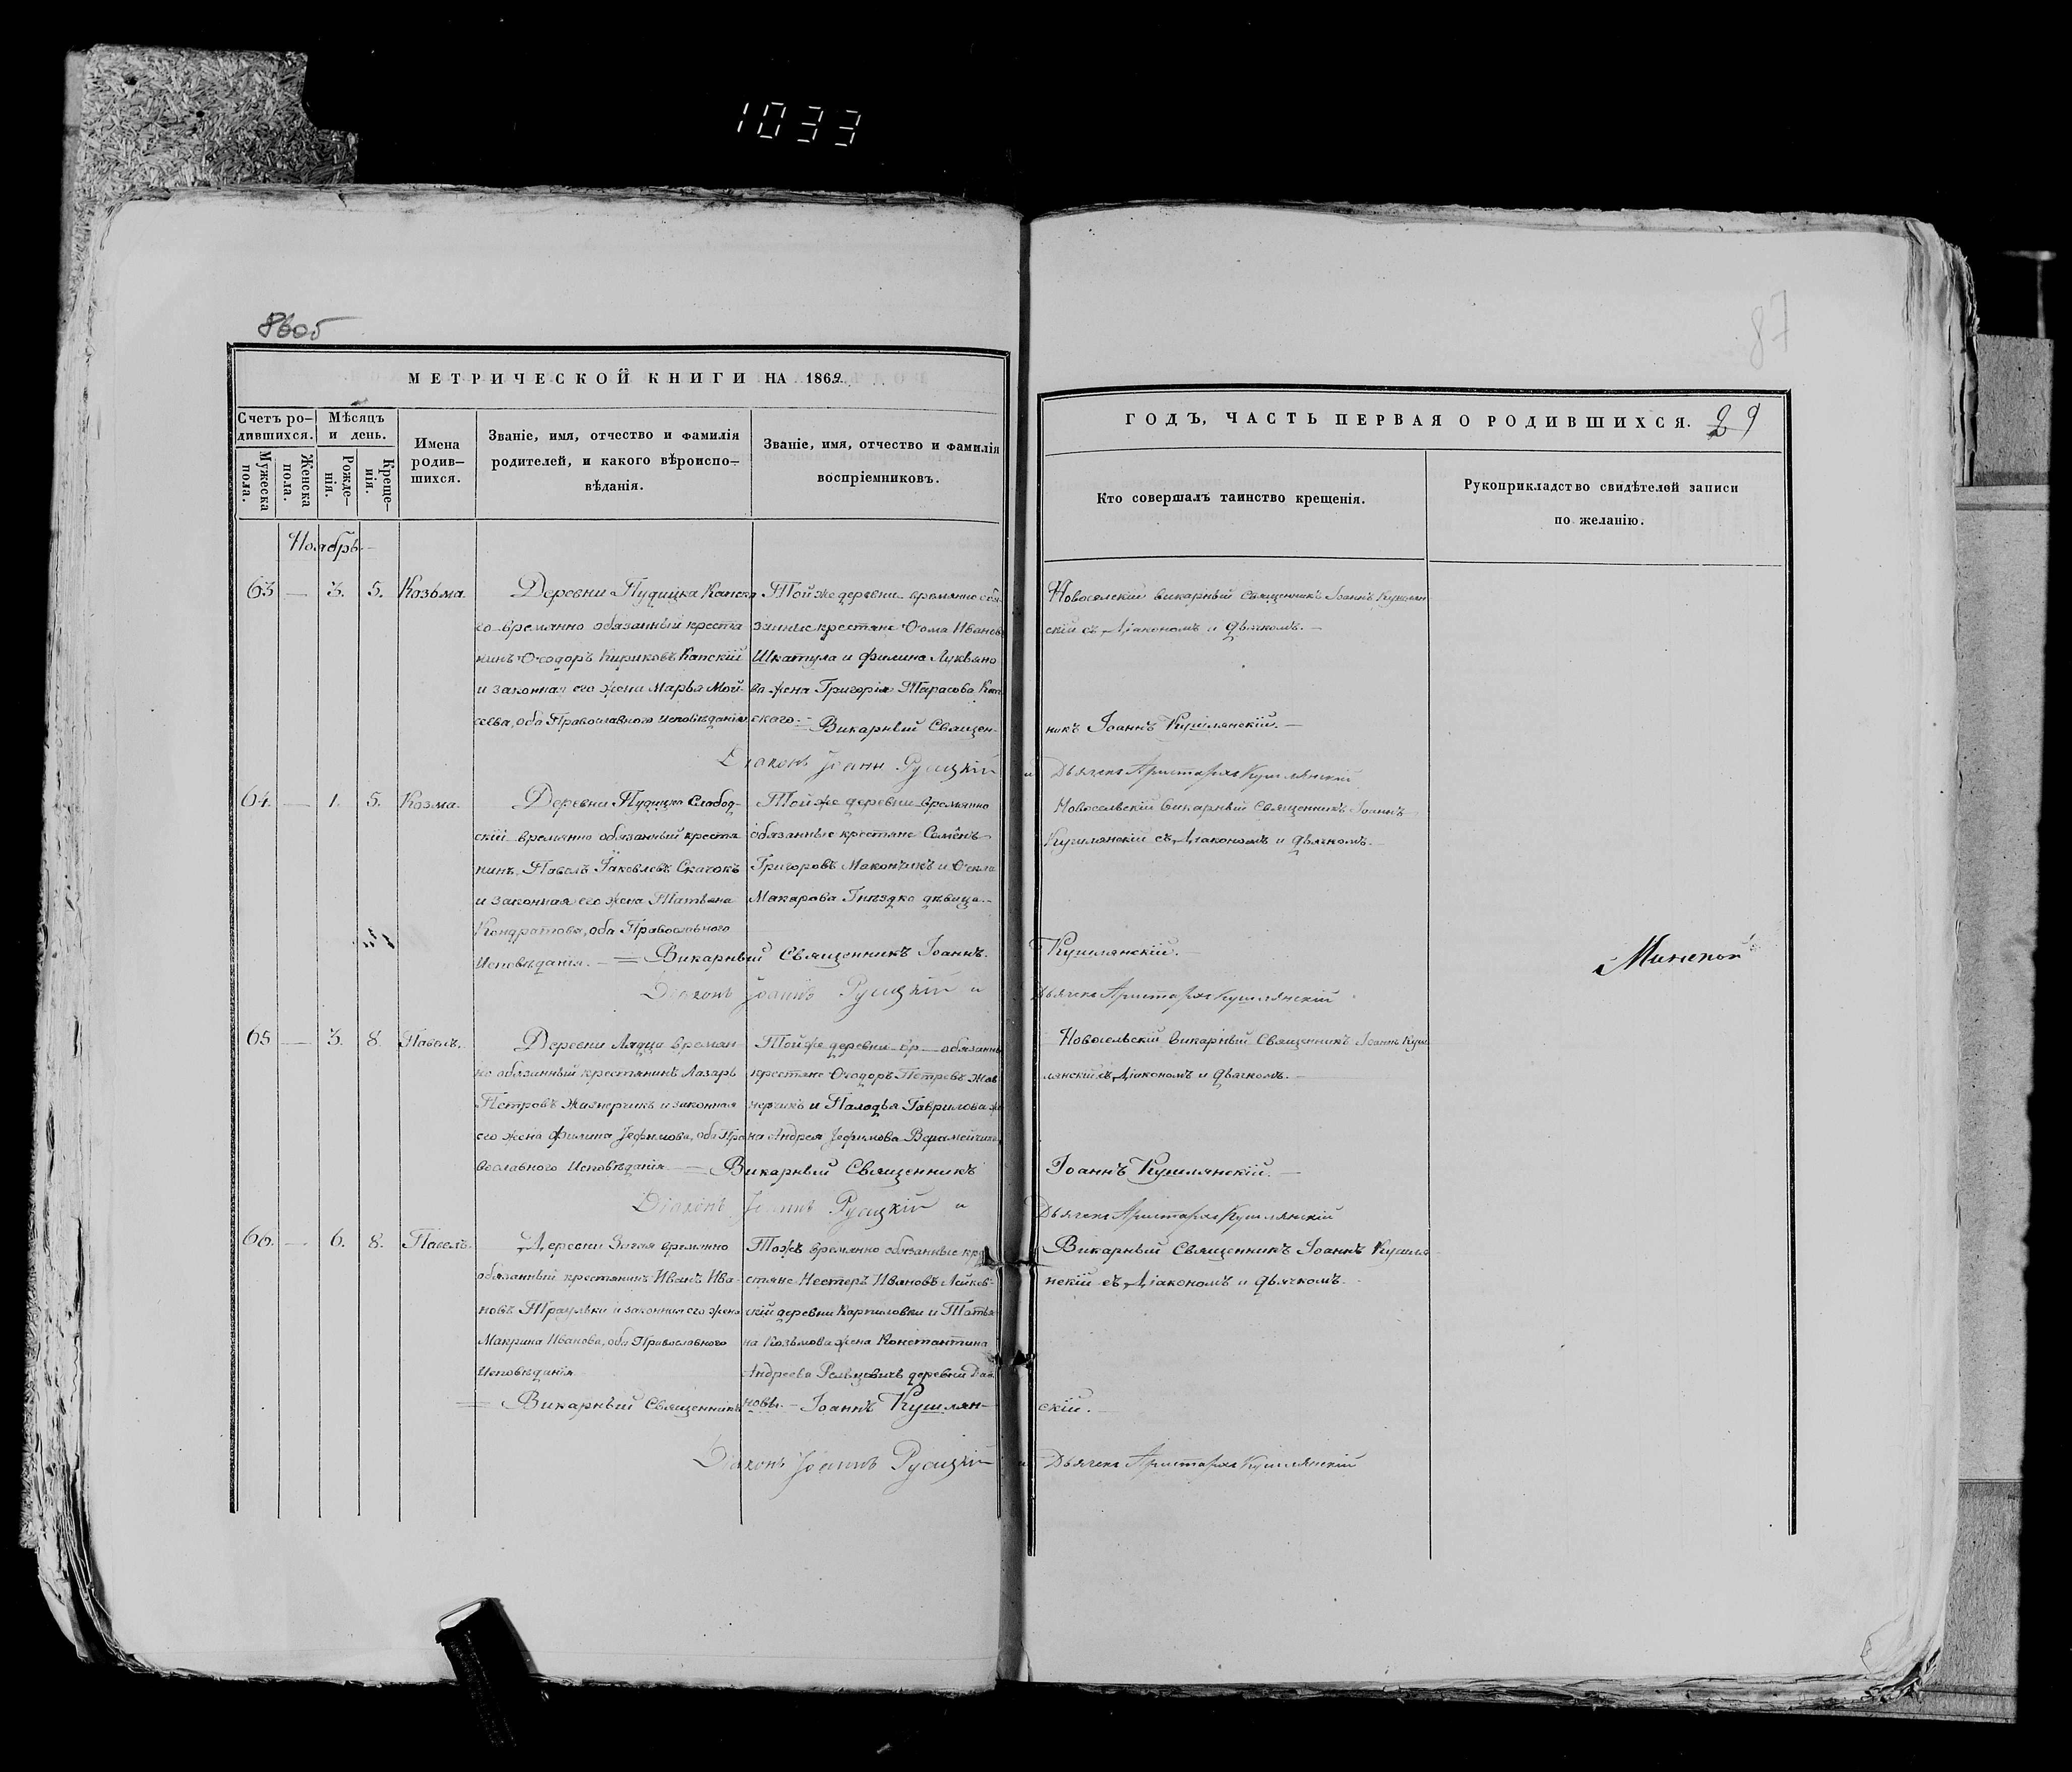 1033
86об
87
МЕТРИЧЕСКОЙ КНИГИ НА 1862
ГОДЪ, ЧАСТЬ ПЕРВАЯ О РОДИВШИХСЯ. 29
Счетъ ро-
дившихся.
Мужеска
пола.
Женска
пола.
Мѣсяцъ
и день.
Рожде-
нія.
Креще-
нія.
Имена
родив-
шихся.
Званіе, имя, отчество и фамилія
родителей, и какого вѣроиспо-
вѣданія.
Званіе, имя, отчество и фамилія
воспріемниковъ.
Кто совершалъ таинство крещенія.
Рукоприкладство свидѣтелей записи
по желанію.
Ноябрь
63 — 3. 5. Козьма.
Деревни Пудицка Канска
го временно обязанный крестья
нинъ Ѳеодоръ Кириковъ Капскій
и законная его жена Марья Мой-
сеева, оба Православнаго исповѣданія
Той же деревни временно обя-
занные крестяне Ѳома Ивановъ
Шкатула и Филина Лукьяно
ва жена Григорія Тарасова Кап
скаго. — Викарный Священ-
Новоселскій викарный Священникъ Іоаннъ Кушлян
скій съ Діакономъ и дьячкомъ. —
никъ Іоаннъ Кушлянскій. —
Діаконъ Іоаннъ Русецкій и
Дьячекъ Аристархъ Кушлянскій
64. — 1. 5. Козма.
Деревни Пудицка Слобод-
скій времянно обязанный крестя
нинъ Павелъ Іаковлевъ Скачокъ
и законная его жена Татьяна
Кондратова, оба Православного
Исповѣданія. — = Викарный Священникъ Іоаннъ.
Той же деревни времянно
обязанные крестяне Семёнъ
Григоровъ Макончикъ и Ѳекла
Макарова Гнѣздко дѣвица.
Новосельскій Викарный Священникъ Іоаннъ
Кушлянскій съ Діакономъ и дьячкомъ.
Кушлянскій. —
Минской
Діаконъ Іоаннъ Русецкій и
Дьячекъ Аристархъ Кушлянскій
65 — 3. 8. Павелъ.
Деревни Лядца времян
но обязанный крестянинъ Лазарь
Петровъ Жавнерчикъ и законная
его жена Филина Іефимова, оба Пра
вославного Исповѣданія — Викарный Священникъ
Той же деревни вр— обязанны
крестяне Ѳеодоръ Петровъ Жав
нерчикъ и Палодья Гаврилова же
на Андрея Іефимова Верамейчика
Новосельскій Викарный Священникъ Іоаннъ Куш
лянскій съ Діакономъ и дьячкомъ. —
Іоаннъ Кушлянскій. —
Діаконъ Іоаннъ Русецкій и
Дьячекъ Аристархъ Кушлянскій
66. — 6. 8. Павелъ.
Деревни времянно
обязанный крестянинъ Иванъ Ива-
новъ и законная его жена
Макрина Иванова, оба Православного
Исповѣданія
Тожъ времянно обязанные кре
стяне Нестеръ Ивановъ
скій деревни Карпиловки и Татья
на Козьмова жена Константина
Андреева деревни Дай
новы. —
= Викарный Священникъ Іоаннъ Кушлян-
Викарный Священникъ Іоаннъ Кушля
нскій съ Діакономъ и дьячкомъ. —
скій.
Діаконъ Іоаннъ Русецкій и
Дьячекъ Аристархъ Кушлянскій